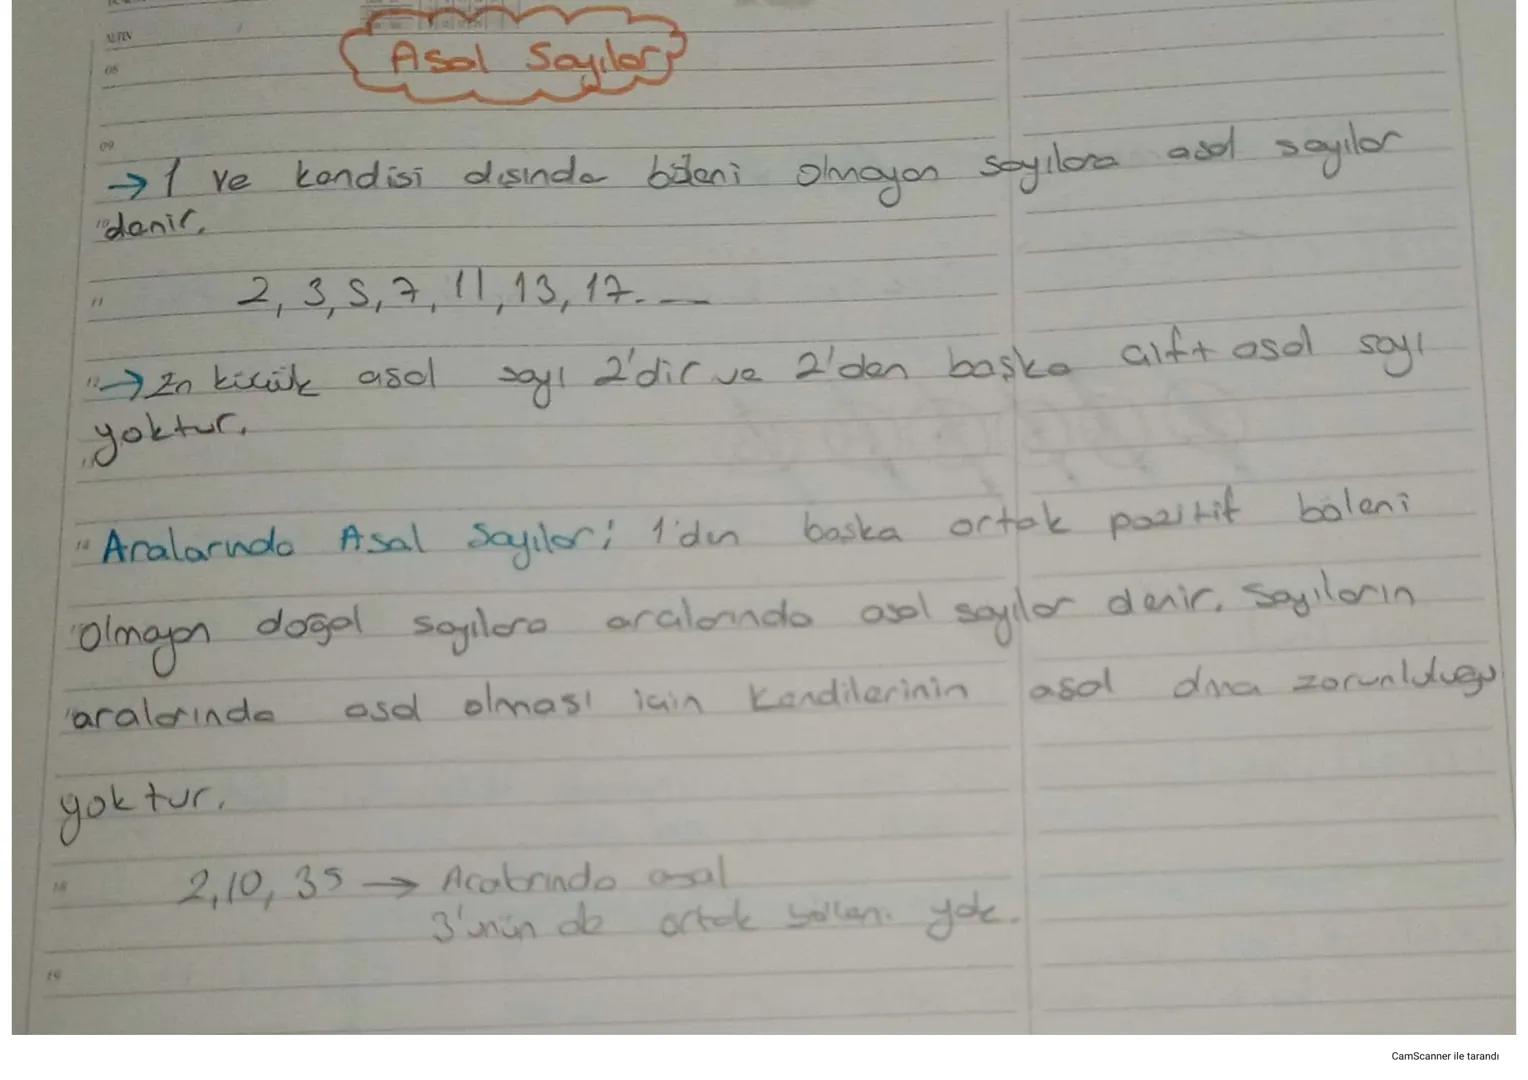 ALTIN
08
Asal Sayılar
09
→ 1 ve kendisi dışında böleni olmayan sayılara asal sayılar
10 denir.
11 2, 3, 5, 7, 11, 13, 17. —
12 → En küçük asal sayı 2'dir ve 2'den başka çift asal sayı
yoktur.
14 Aralarında Asal Sayılar; 1'den başka ortak pozitif böleni
olmayan doğal sayılara aralarında asal sayılar denir. Sayıların
aralarında asal olması için kendilerinin asal olma zorunluluğu
yoktur.
18 2, 10, 35 → Aralarında asal
3'ünün de ortak böleni yok.
19
CamScanner ile tarandı